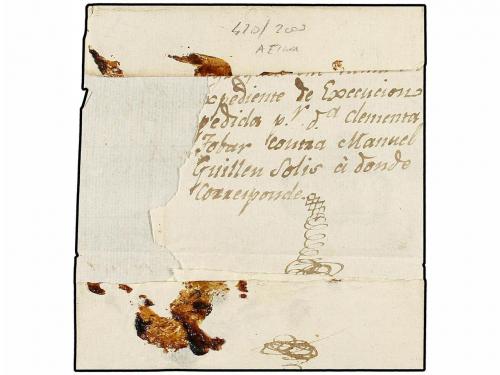 420/2000
expediente de Execucion
pedida pr. da. Clementa
Tobar contra Manuel
Guillen Solis á donde
Corresponde.